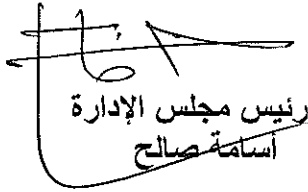 رئيس مجلس الإدارة
أسامة صالح